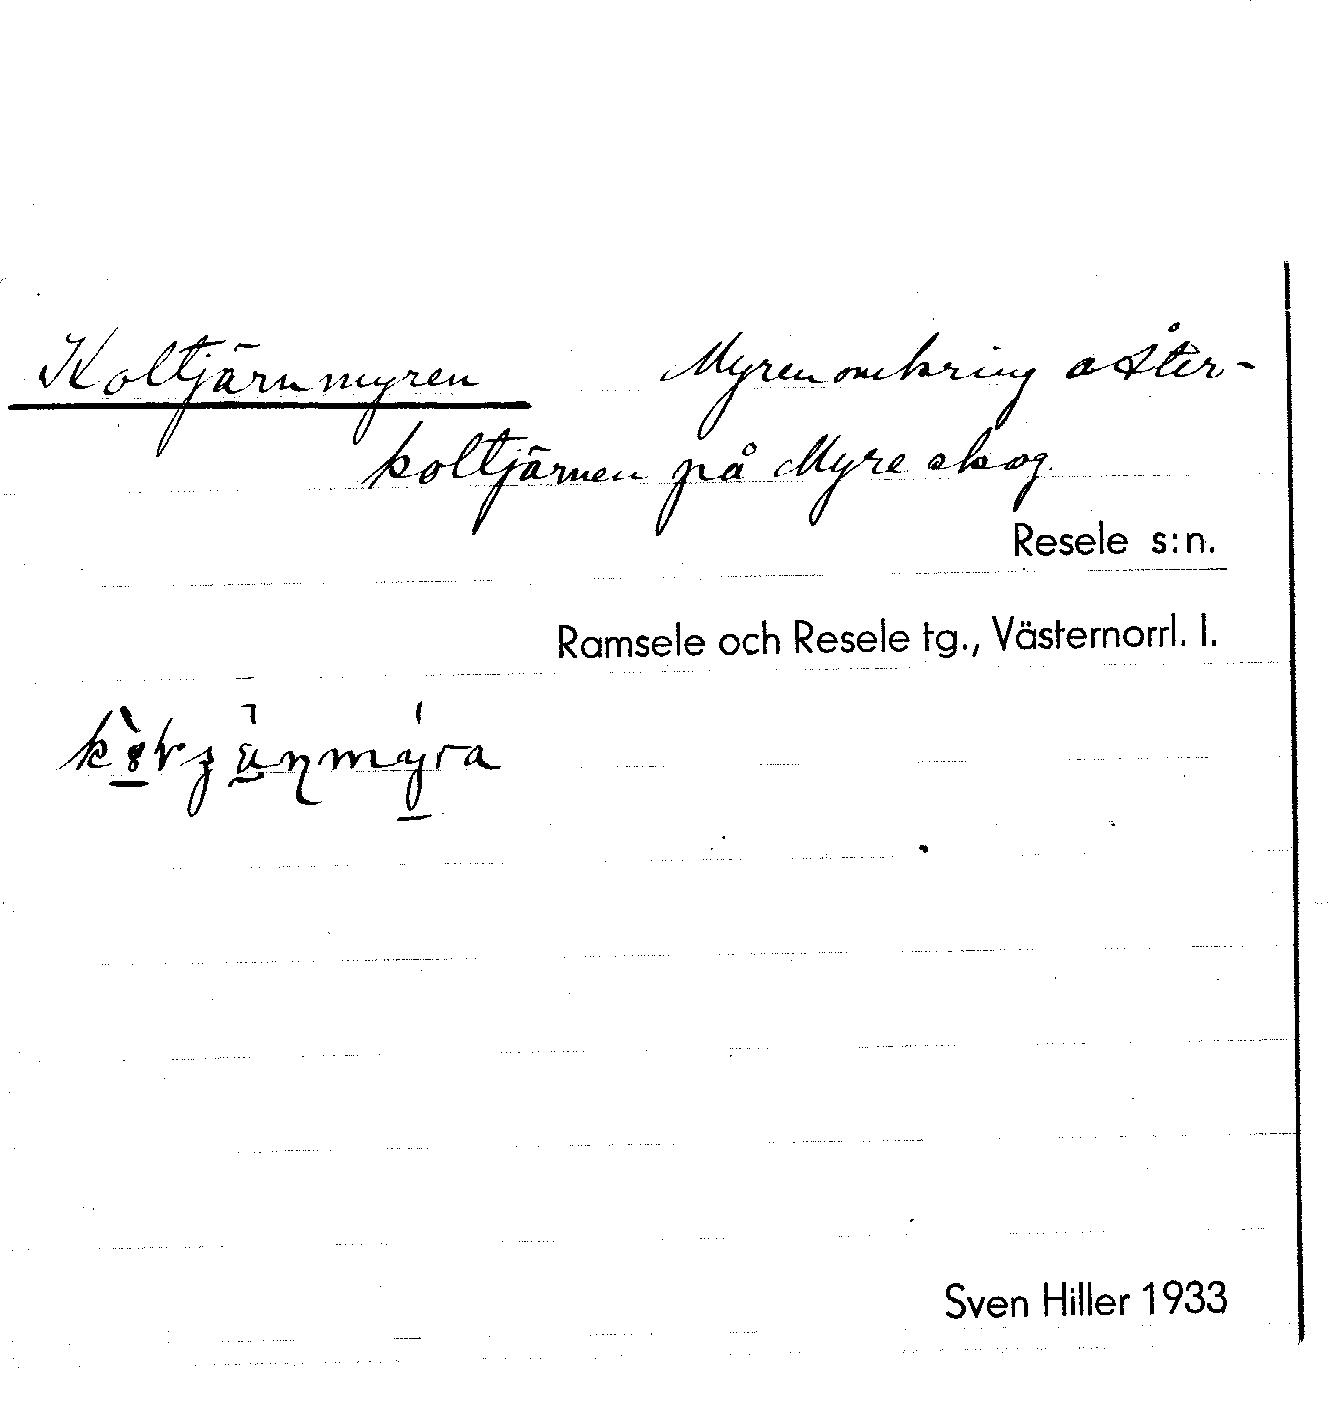 Koltjärnmyren Myren omkring Åter-
koltjärnen på Myre skog.
Resele s:n.
Ramsele och Resele tg., Västernorrl. l.
Sven Hiller 1933